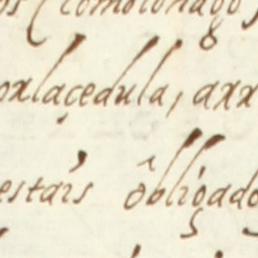 (como lo hago
laçedula, axx
estais obligado